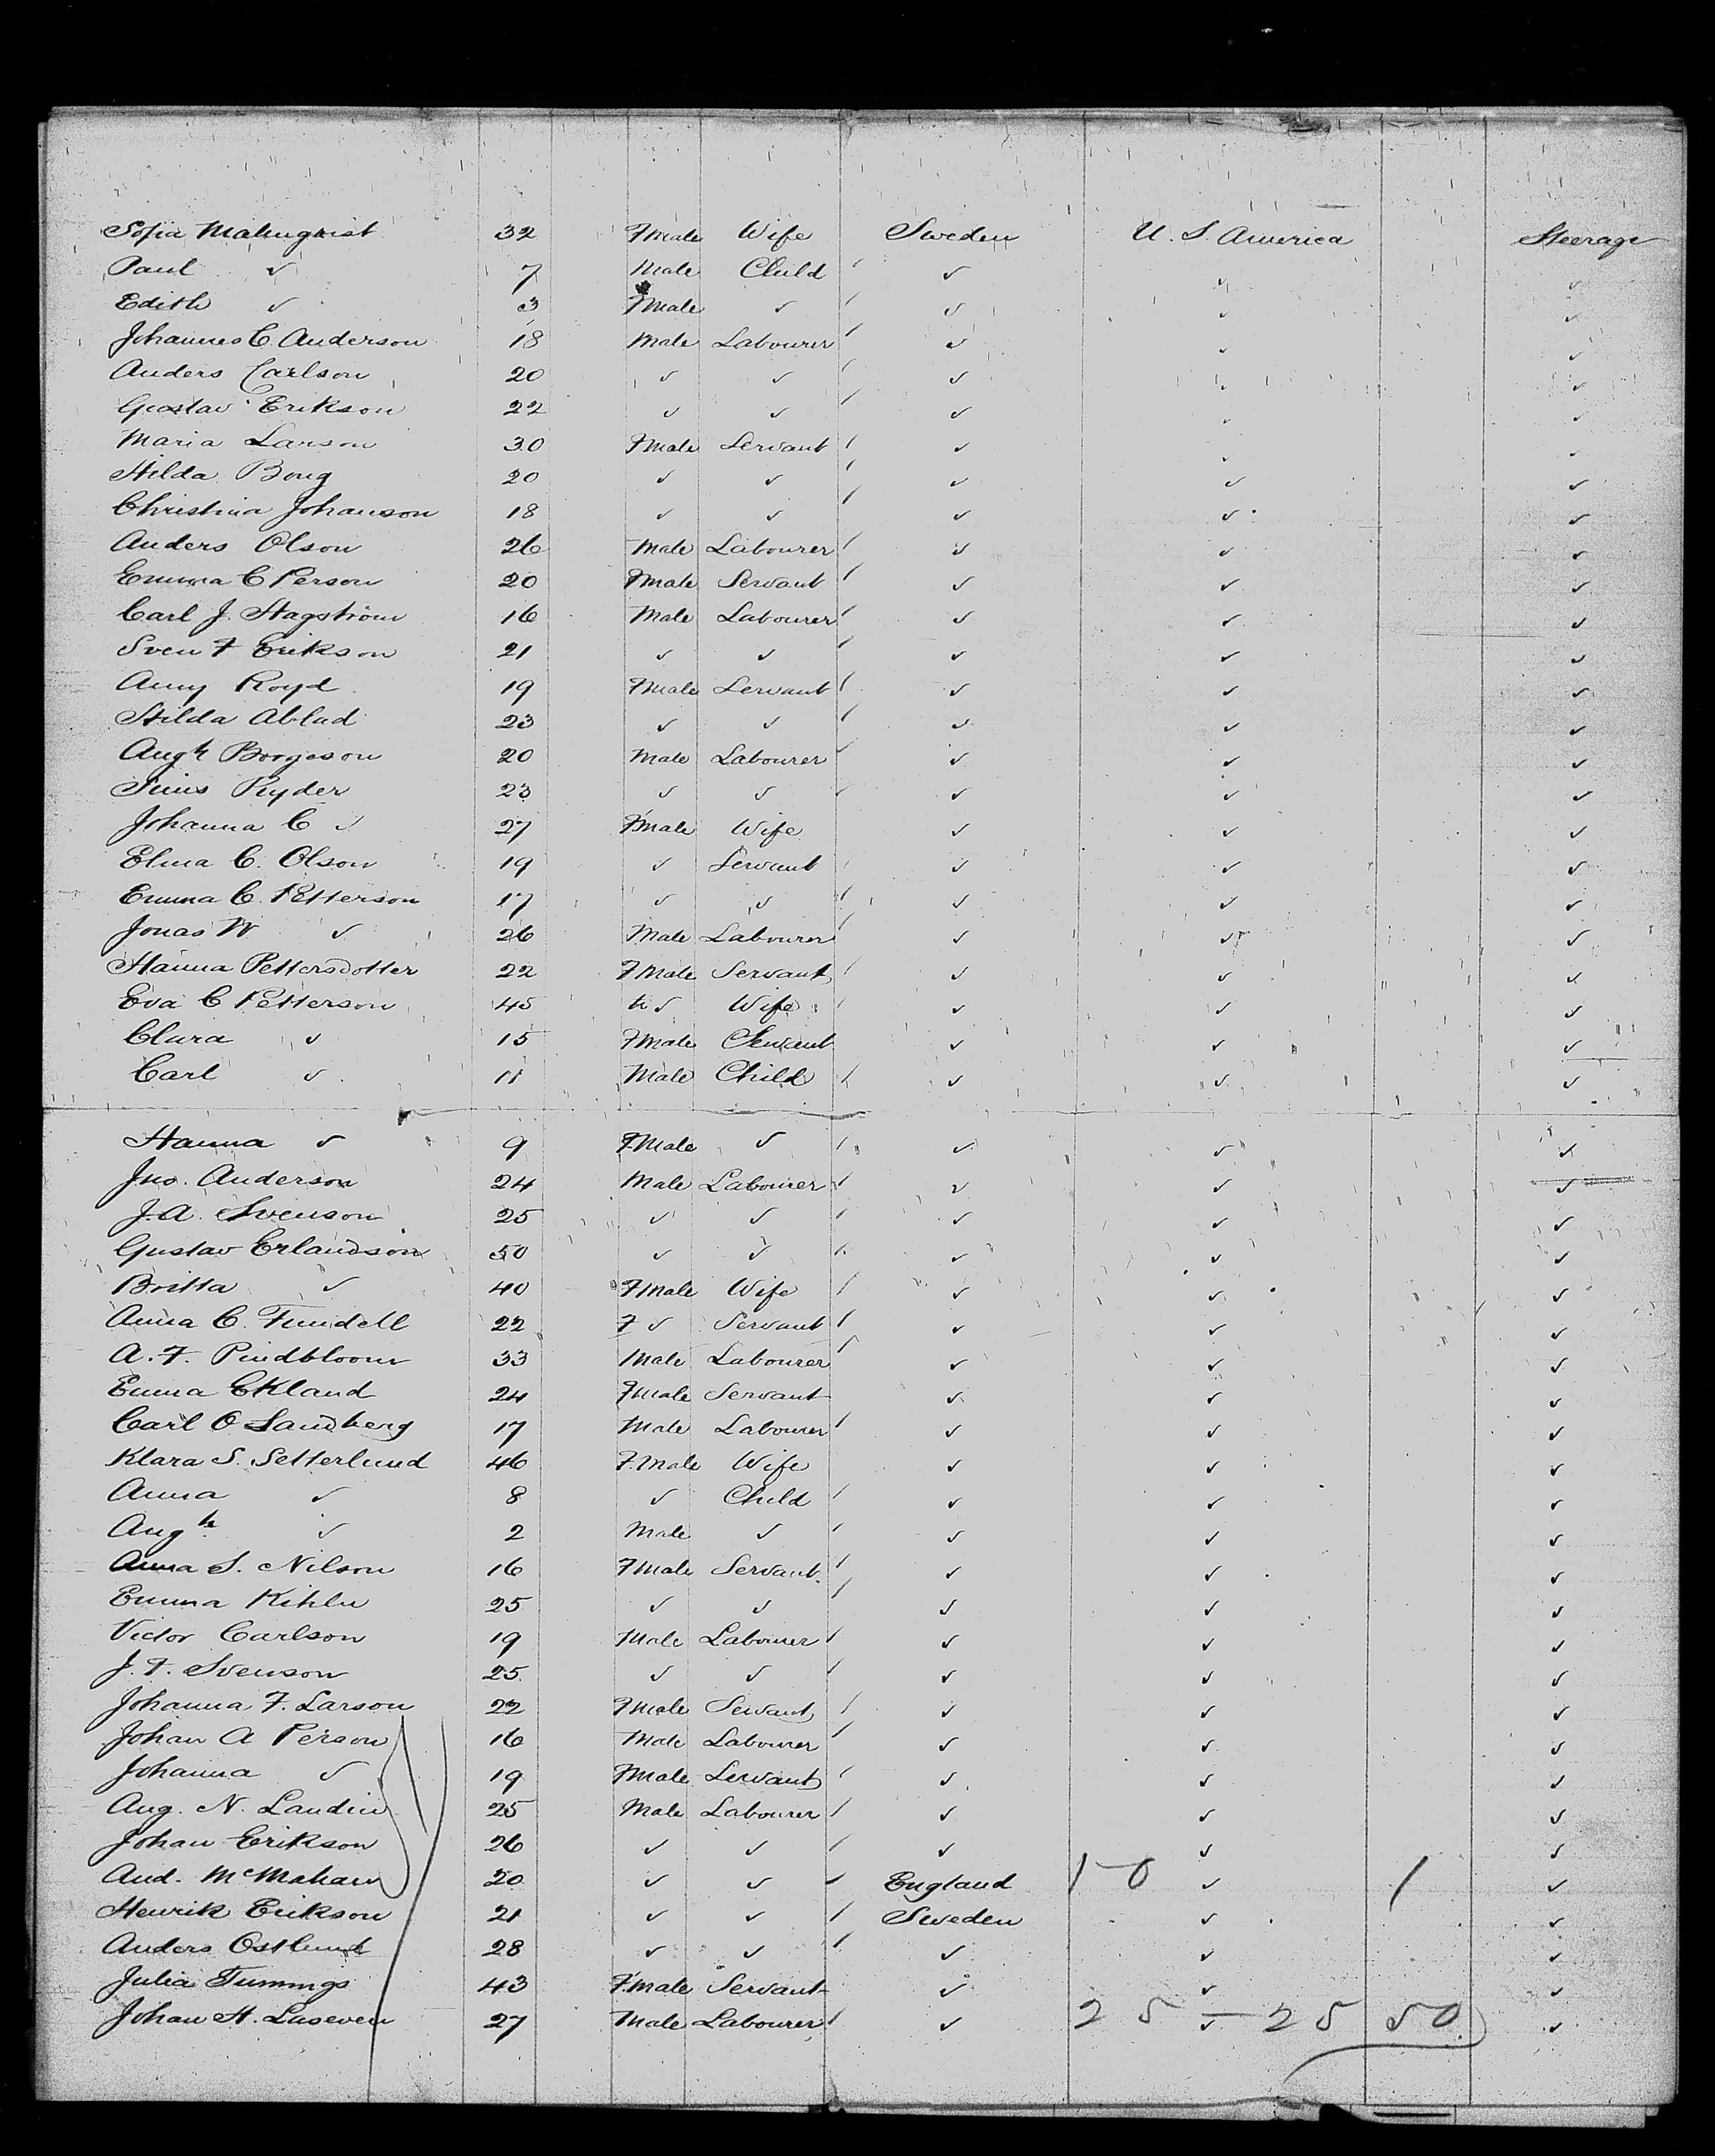 Sofia Malmquist 32 Fmale Wife Sweden U. S. America Steerage
Paul ✓ 7 Male Child ✓ ✓ ✓
Edith ✓ 3 Fmale ✓ ✓ ✓ ✓
Johannes C. Anderson 18 Male Labourer ✓ ✓ ✓
Anders Carlson 20 ✓ ✓ ✓ ✓ ✓
Gustav Erikson 22 ✓ ✓ ✓ ✓ ✓
Maria Larson 30 Fmale Servant ✓ ✓ ✓
Hilda Boug 20 ✓ ✓ ✓ ✓ ✓
Christina Johanson 18 ✓ ✓ ✓ ✓ ✓
Anders Olson 26 Male Labourer ✓ ✓ ✓
Emma C Person 20 Fmale Servant ✓ ✓ ✓
Carl J. Hagström 16 Male Labourer ✓ ✓ ✓
Sven F Erikson 21 ✓ ✓ ✓ ✓ ✓
Amy Royd 19 Fmale Servant ✓ ✓ ✓
Hilda Ablad 23 ✓ ✓ ✓ ✓ ✓
Augh Borgeson 20 Male Labourer ✓ ✓ ✓
Ryder 23 ✓ ✓ ✓ ✓ ✓
Johanna C ✓ 27 Fmale Wife ✓ ✓ ✓
Elina C. Olson 19 ✓ Servant ✓ ✓ ✓
Emma C. Petterson 17 ✓ ✓ ✓ ✓ ✓
Jonas W ✓ 26 Male Labourer ✓ ✓ ✓
Hanna Pettersdotter 22 Fmale Servant ✓ ✓ ✓
Eva C Petterson 45 ✓ Wife ✓ ✓ ✓
Clara ✓ 15 Fmale Servant ✓ ✓ ✓
Carl ✓ 11 Male Child ✓ ✓ ✓
Hanna ✓ 9 Fmale ✓ ✓ ✓ ✓
Jno. Anderson 24 Male Labourer ✓ ✓ ✓
J. A. Svenson 25 ✓ ✓ ✓ ✓ ✓
Gustav Erlandson 50 ✓ ✓ ✓ ✓ ✓
Britta ✓ 40 Fmale Wife ✓ ✓ ✓
Anna C. Fundell 22 F ✓ Servant ✓ ✓ ✓
A. F. Pindbloom 33 Male Labourer ✓ ✓ ✓
Emma Ekland 24 Fmale Servant ✓ ✓ ✓
Carl O Sandberg 17 Male Labourer ✓ ✓ ✓
Klara S. Setterlund 46 F.male Wife ✓ ✓ ✓
Anna ✓ 8 ✓ Child ✓ ✓ ✓
Augh ✓ 2 Male ✓ ✓ ✓ ✓
Anna S. Nilson 16 Fmale Servant ✓ ✓ ✓
Emma Kihln 25 ✓ ✓ ✓ ✓ ✓
Victor Carlson 19 Male Labourer ✓ ✓ ✓
J. F. Svenson 25 ✓ ✓ ✓ ✓ ✓
Johanna F. Larson 22 Fmale Servant ✓ ✓ ✓
Johan A Person 16 Male Labourer ✓ ✓ ✓
Johanna ✓ 19 Fmale Servant ✓ ✓ ✓
Aug. N. Landin 25 Male Labourer ✓ ✓ ✓
Johan Erikson 26 ✓ ✓ ✓ ✓ ✓
And. McMahan 20 ✓ ✓ England 1-0 ✓ 1 ✓
Henrik Erikson 21 ✓ ✓ Sweden ✓ ✓
Anders Ostlund 28 ✓ ✓ ✓ ✓ ✓
Julia Tummngs 43 F.male Servant ✓ ✓ ✓
Johan H. Laseven 27 Male Labourer ✓ 25 - 25 50 ✓